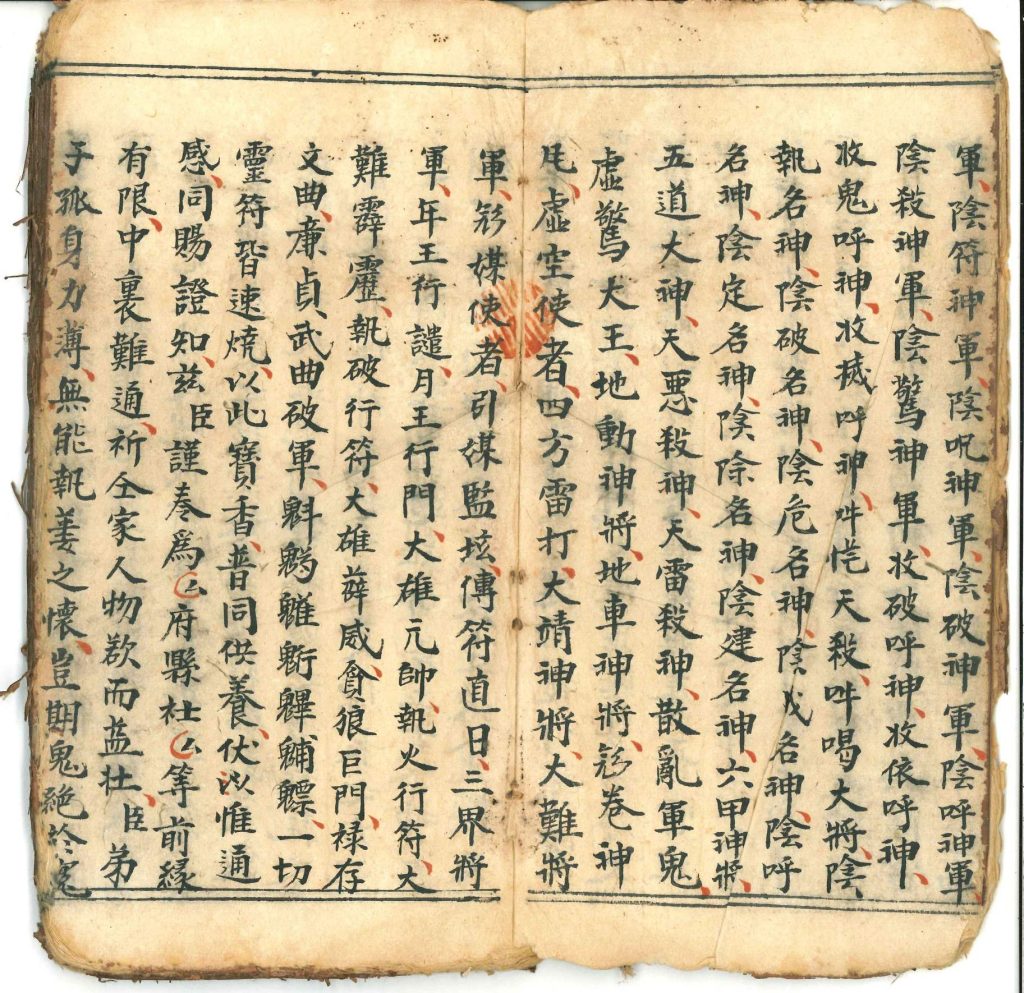 軍、陰符神軍、陰呪神軍、陰破神軍、陰呼神軍、
陰殺神軍、陰驚神軍、收破呼神、收依呼神、
收鬼呼神、收攝呼神、吽恾天殺、吽喝大將、陰
執名神、陰破名神、陰危名神、陰成名神、陰呼
名神、陰定名神、陰除名神、陰建名神、六甲神將、
五道大神、天惡殺神、天雷殺神、散亂軍鬼、
虛驚大王、地動神將、地車神將、卷神
虛空使者、四方雷打、大靖神將、大難將
軍、媒使者、引媒監垓、傳符直日、三界將
軍、年王行譴、月王行門、大雄元帥、執火行符、大
難霹靂、執破行符、大雄薛威、貪狼巨門、祿存
文曲、廉貞、武曲破軍、魁䰢䰨魓、一切
靈符、皆速燒、以此寶香、普同供養、伏以惟通
感、同賜證知、茲臣謹奏爲厶府縣社厶等前緣
有限、中裏難通、祈仝家人物欲而益壮、臣弟
子孤身力薄、無能執美之懷、豈期鬼絕於冤